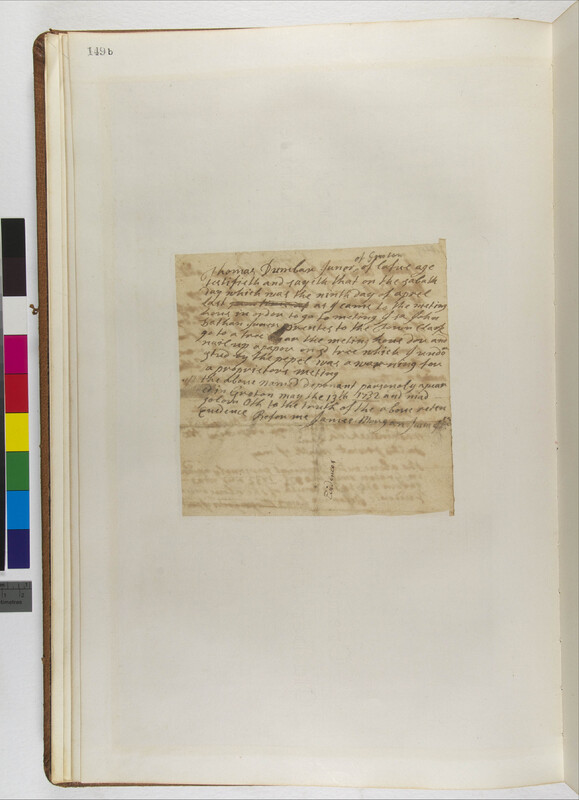 149b
of Groton
Thomas Dunbar Junor of lafue age
testifieth and sayith that on the sabath
day which was the ninth day of aprel
last as I came to the meeting
hous in ordor to go to meting I sa John
prentes to the town Clark
go to a tree near the meting hous dor and
nail up a paper on sd tree which I undor
stud by the pepel was a warning for
a propriators meting
the above named deponant parsonaly apear
ed in Groton may the 13th 1732 and mad
solom Oth to the truth of the above reten
Evidence before me James Morgan Jus peace